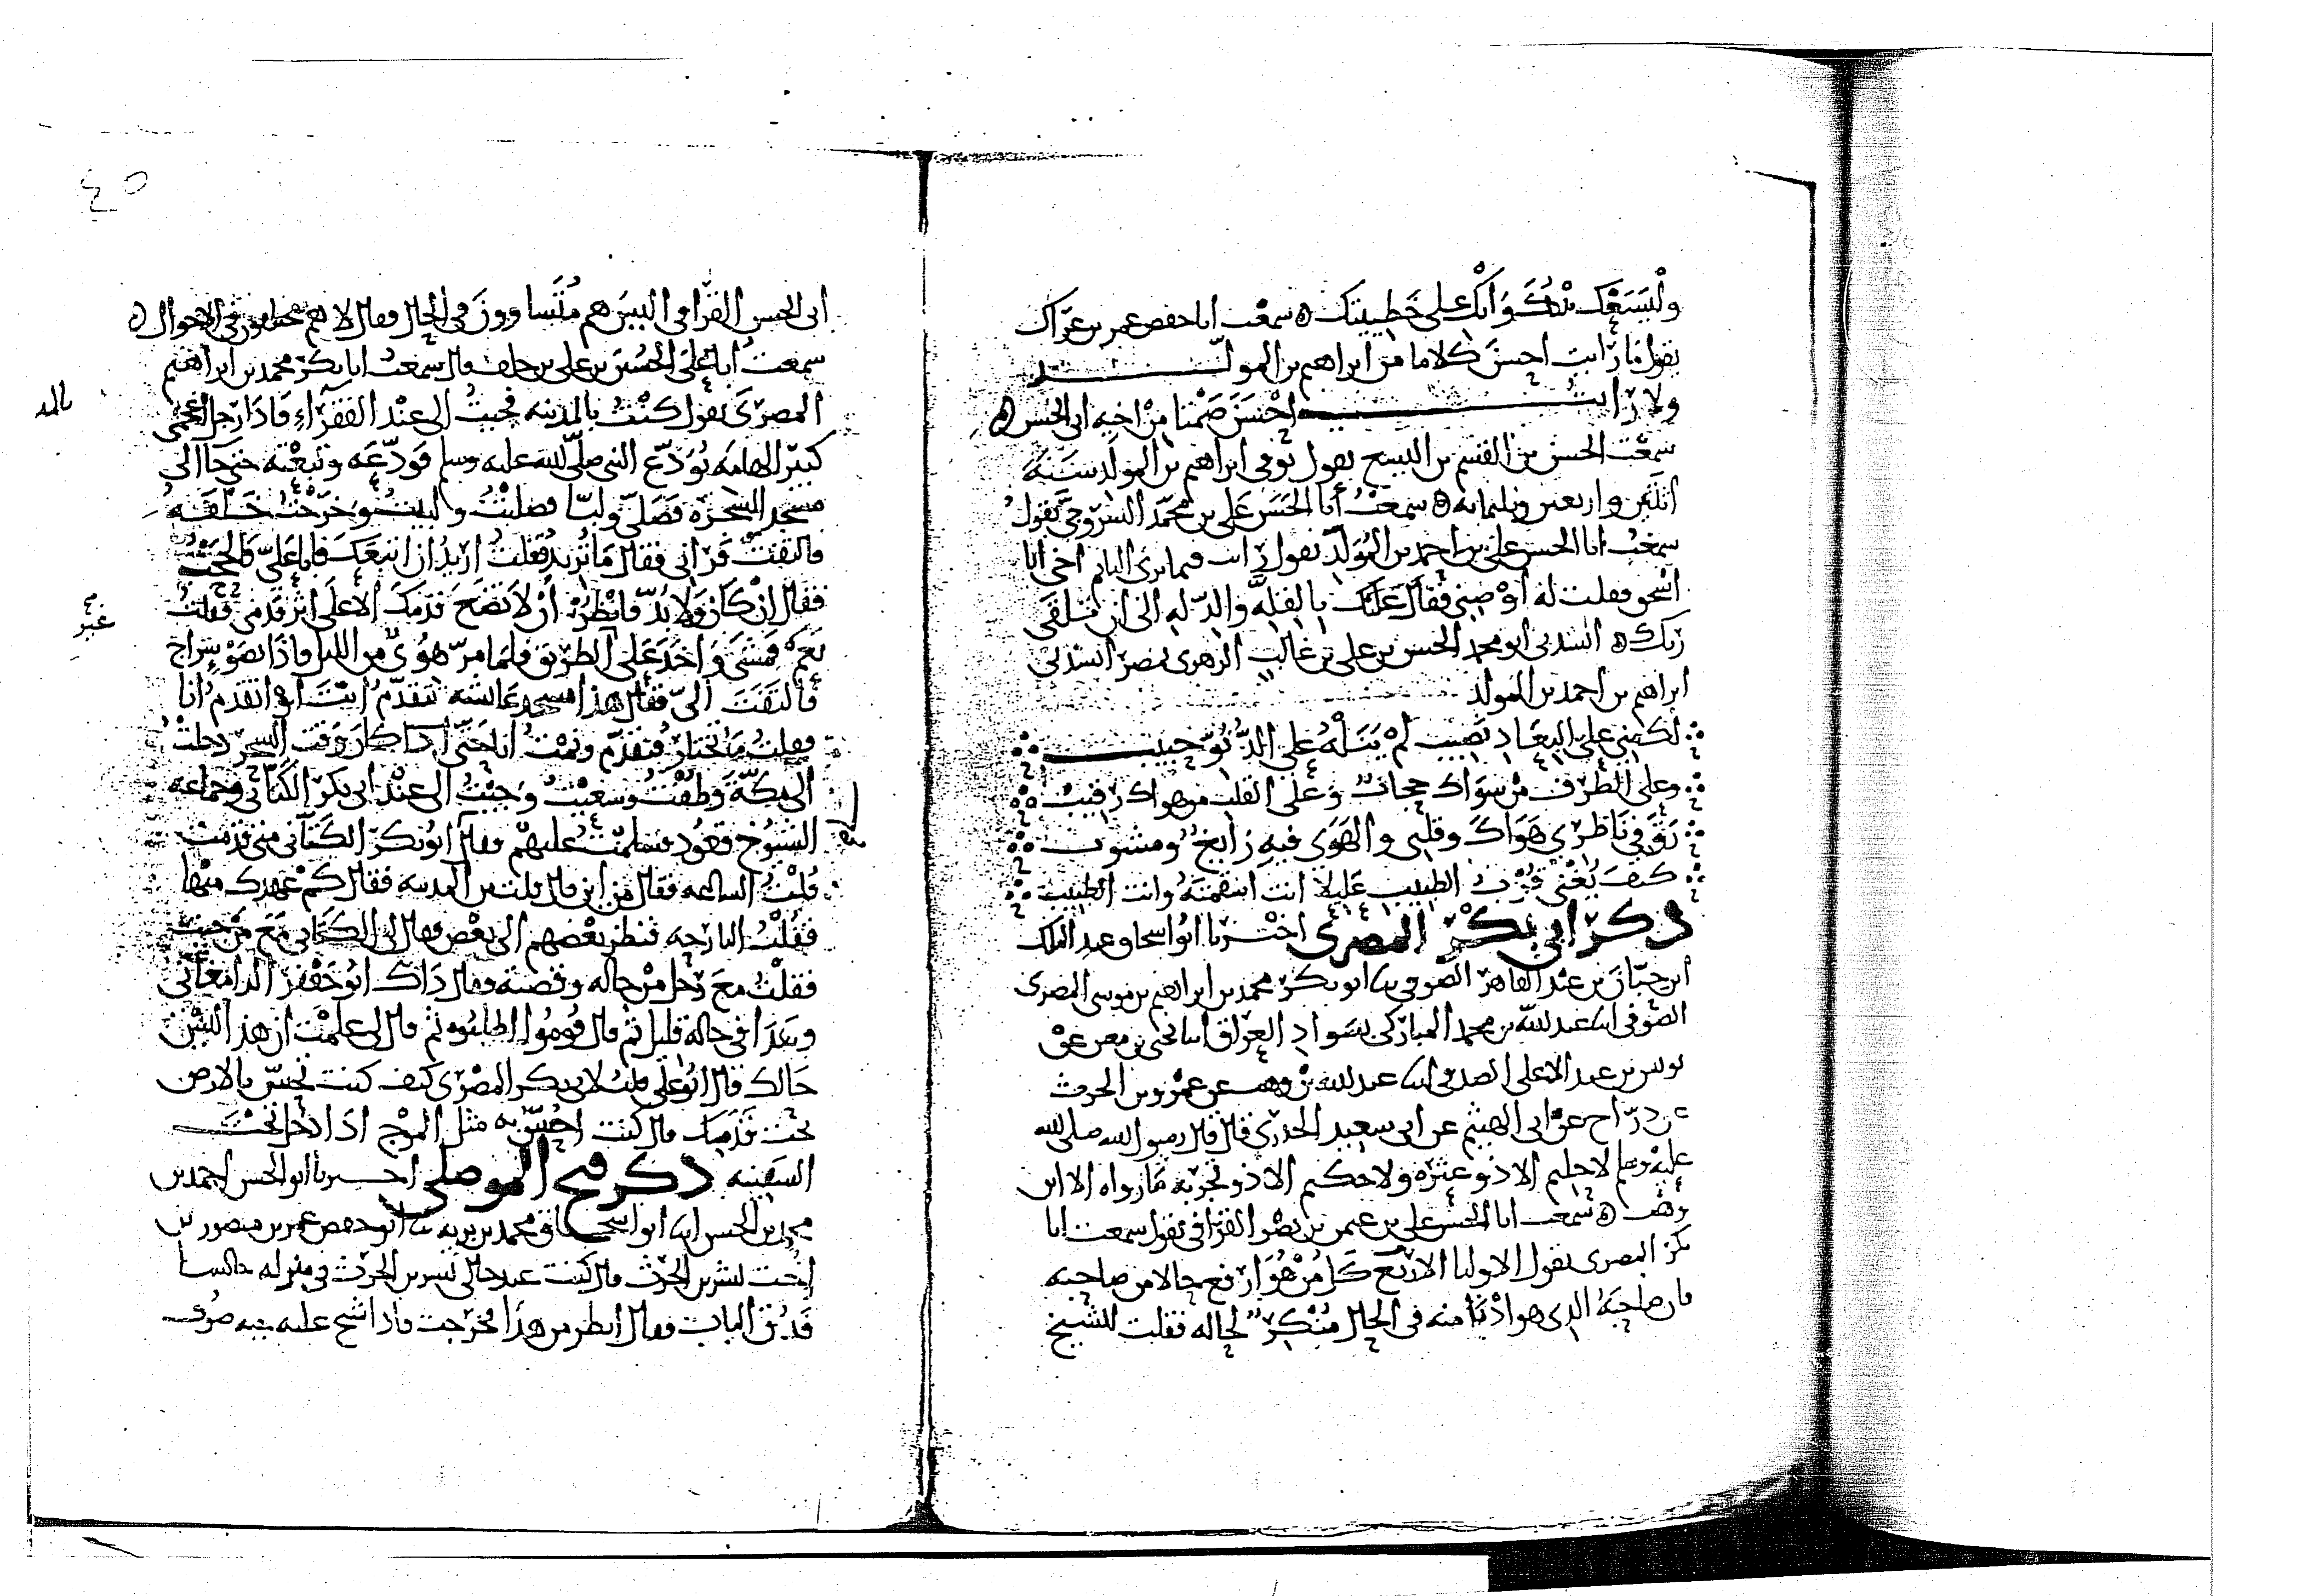 وليسعك بيتك وابك على خطيتك ه سمعت ابا حفص عمر بن عراك
يقول ما رايت احسن كلاما من ابراهيم بن المولد
ولا رايت احسن صمتا من اخيه ابي الحسن ه
سمعت الحسن بن القسم بن اليسع يقول توفي ابراهيم بن المولد سنة
اثنتين واربعين وثلثمايه ه سمعت ابا الحسن علي بن محمد السروجي يقول
سمعت ابا الحسن علي بن احمد بن المولد يقول رايت فيما يرى النايم اخي ابا
اسحق فقلت له اوصني فقال عليك بالقله والذله الى ان تلقى
ربك ه انشدني ابو محمد الحسن بن علي بن غالب الزهري بمصر انشدني
ابراهيم بن احمد بن المولد
لك مني على البعاد نصيب لم ينله على الدنو حبيب
وعلى الطرف من سواك حجاب وعلى القلب من هواك رقيب
في ناظري هواك وقلبي والهوى فيه رايخ ومشوب
كيف يغني قرب الطبيب عليلا انت اسقمته وانت الطبيب
ذكر ابي بكر المصري اخبرنا ابو اسحاق عبد الملك
ابن حبان بن عبد القاهر الصوفي ثنا ابو بكر محمد بن ابراهيم بن موسى المصري
الصوفي ثنا عبد الله بن محمد المباركي بسواد العراق ثنا يحيى بن معين عن
يونس بن عبد الاعلى الصدفي ثنا عبد الله بن وهب عن عمرو بن الحرث
عن دراج عن ابي الهيثم عن ابي سعيد الخدري قال قال رسول الله صلى الله
عليه وسلم لا حليم الا ذو عثره ولا حكيم الا ذو تجربه ما رواه الا ابن
وهب ه سمعت ابا الحسن علي بن عيسى بن نصر القرافي يقول سمعت ابا
بكر المصري يقول الاوليا الاربع كل من هو ارفع حالا من صاحبه
فان صاحبه الذي هو ادنا منه في الحال منكر لحاله فقلت للشيخ
٤٥
ابي الحسن القرافي اليس هم متساوون في الحال فقال لا هم مختلفون في الاحوال ه
سمعت ابا علي الحسين بن علي بن خلف قال سمعت ابا بكر محمد بن ابراهيم
المصري يقول كنت بالمدينه فجيت الى عند الفقراء فاذا رجل اعجمي
كبير الهامه يودع النبي صلى الله عليه وسلم فودعه وتبعته حتى جا الى
مسجد الشجره فصلى ولبا فصليت ولبيت وخرجت خلفه
فالتفت فراني فقال ما تريد فقلت اريد ان اتبعك فابا علي فالححت
فقال ان كان ولا بد فانظر ان لا تضع قدمك الا على اثر قدمي فقلت
غير
نعم فمشى واخذ على الطريق فلما مر هوي من الليل فاذا بضو سراج
فالتفت الي فقال هذا مسجد عايشه تتقدم انت او اتقدم انا
فقلت ما تختار فتقدم ونمت انا حتى اذا كان وقت السحر دخلت
الى مكه وطفت وسعيت وجيت الى عند ابي بكر الكتاني وجماعه
الشيوخ قعود فسلمت عليهم فقال ابو بكر الكتاني متى قدمت
قلت الساعه فقال من اين قال قلت من المدينه فقال كم عهدك منها
فقلت البارحه فنظر بعضهم الى بعض فقال لي الكتاني مع من جيت
فقلت مع رجل من حاله وقصته وقال ذاك ابو جعفر الدامغاني
وهذا في حاله قليل ثم قال قوموا اطلبوه ثم قال لي علمت ان هذا ليس
حالك قال ابو علي قلت لابي بكر المصري كيف كنت تحس بالارض
تحت قدميك قال كنت احس به مثل الموج اذا دخل تحت
السفينه ذكر فتح الموصلي اخبرنا ابو الحسن احمد بن
محمد بن الحسن ثنا ابو اسحاق محمد بن يزيد ثنا ابو حفص عمر بن منصور بن
اخت بشر بن الحرث قال كنت عند خالي بشر بن الحرث في منزله جالسا
فدق الباب فقال انظر من هذا فخرجت فاذا شيخ عليه جبه صوف